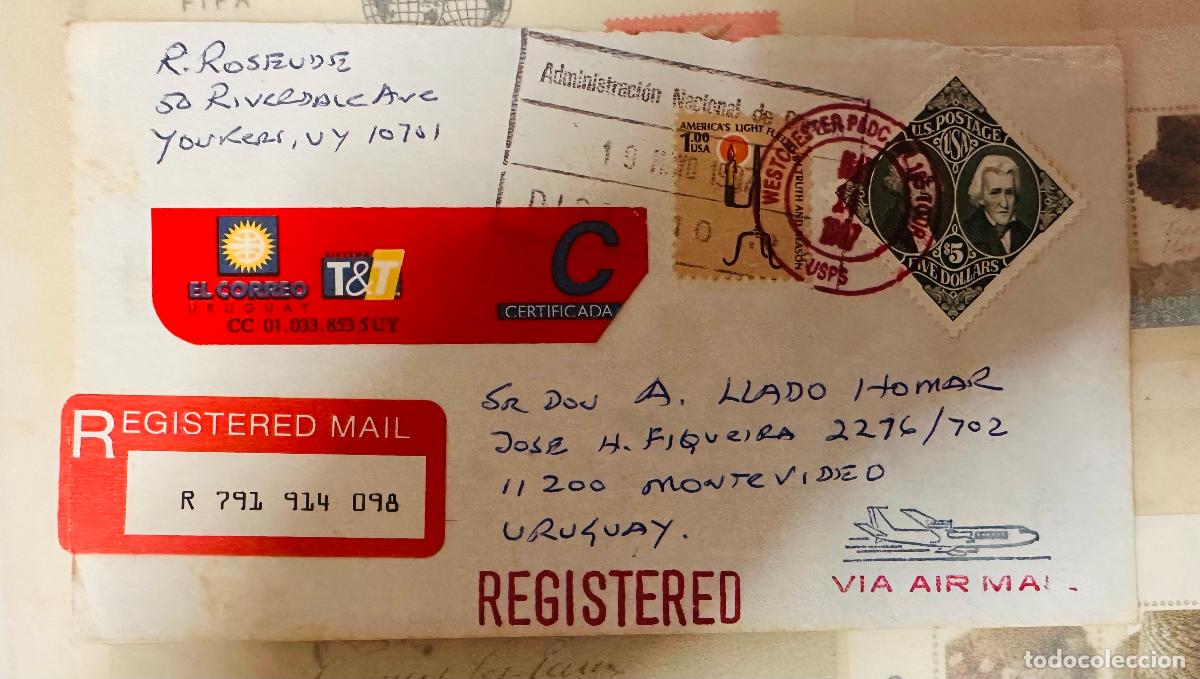 FIFA
R. ROSENDE
50 RIVERDALE AVE
YONKERS, NY 10701
Administración Nacional de
AMERICA'S LIGHT
1.00
USA
TRUTH AND REASON
WESTCHESTER P&DC
TOUR
1997
USPS
U.S. POSTAGE
USA
$5
FIVE DOLLARS
EL CORREO
URUGUAY
T&T
C
CERTIFICADA
CC 01.033.853 5 UY
REGISTERED MAIL
R 791 914 098
SR DON A. LLADO HOMAR
JOSE H. FIGUEIRA 2276/702
11200 MONTEVIDEO
URUGUAY.
VIA AIR MAIL
REGISTERED
todocoleccion